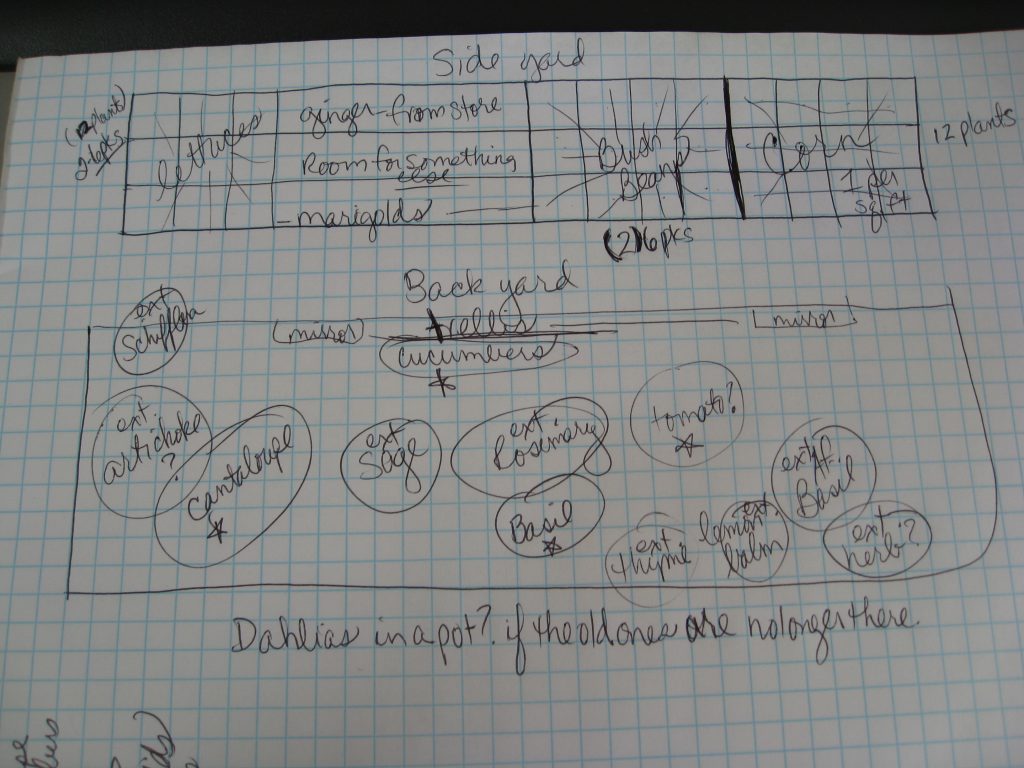 Side yard
(12 plants)
2 6pks
lettuces
ginger from store
Room for something
else
marigolds
Bush
Beans
Corn
1 per
sq ft
12 plants
(2) 6 pks
Back yard
ext
Schefflera
(mirror)
trellis
mirror
cucumbers
ext
artichoke
?
cantaloupe
ext
Sage
ext
Rosemary
tomato?
Basil
ext
thyme
ext
lemon
balm
ext Af.
Basil
ext
herb?
Dahlias in a pot? if the old ones are no longer there.